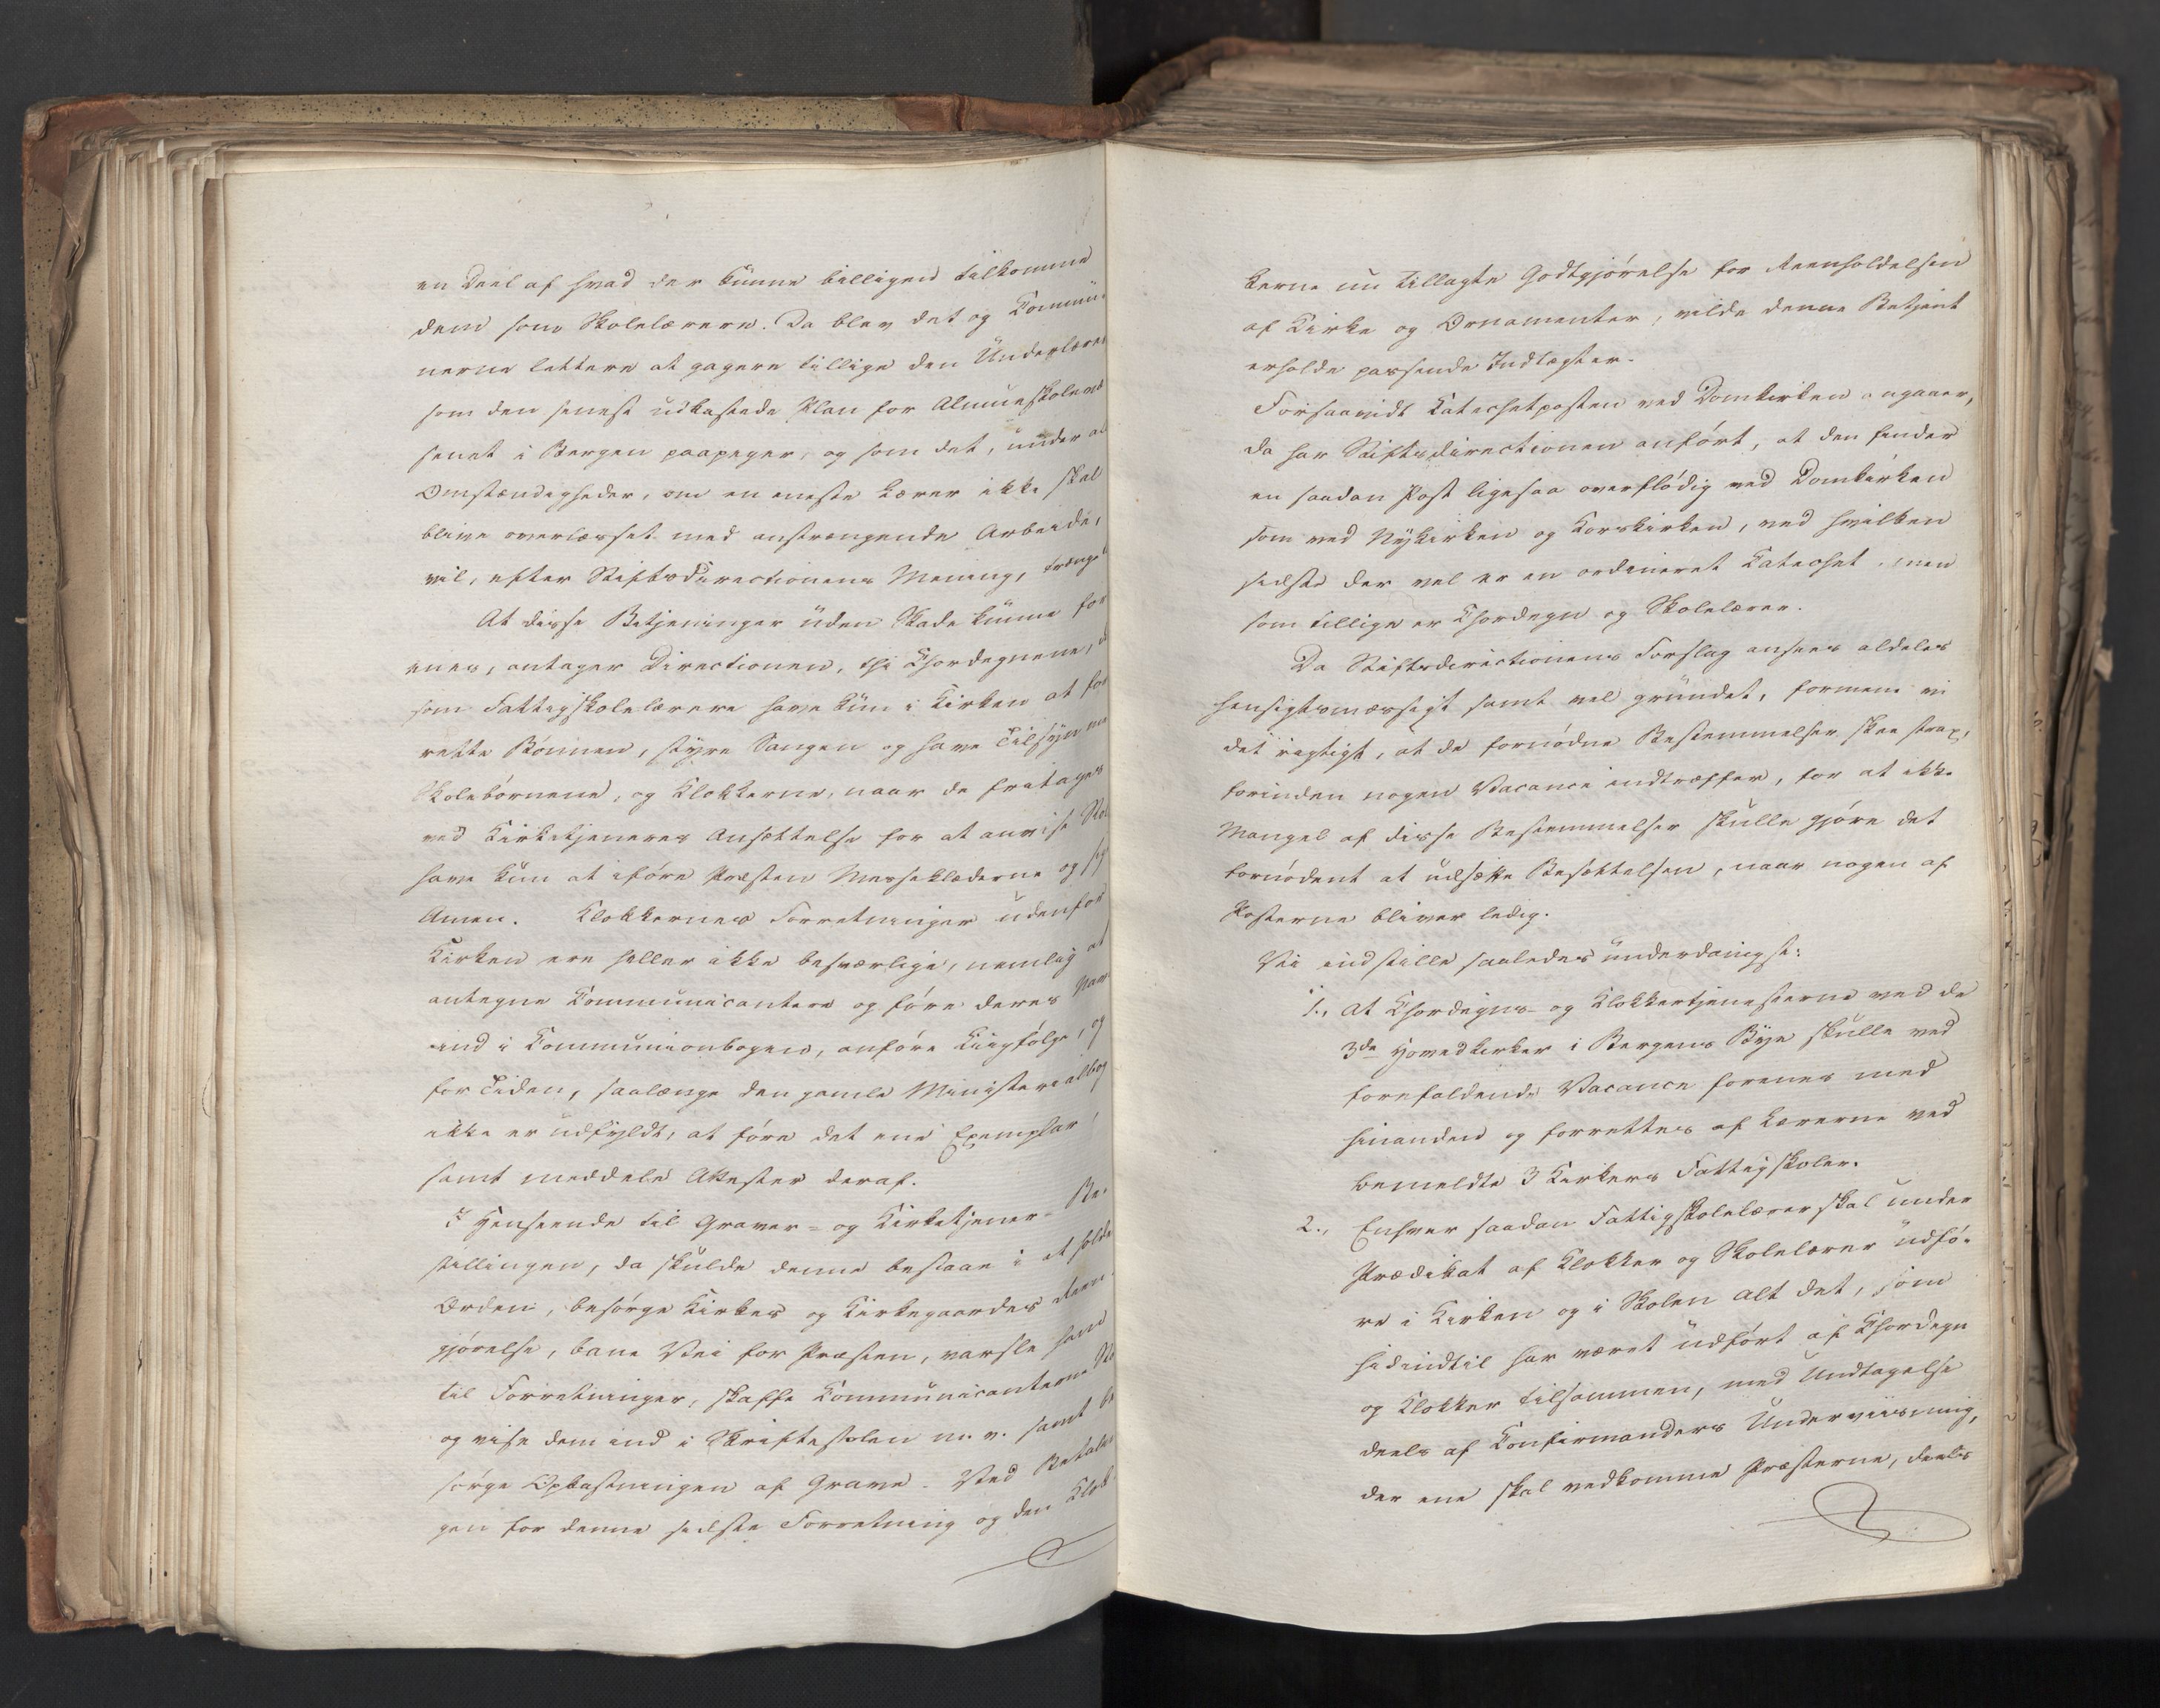 en Deel af hvad der kunne billigen tilkomme
dem som Skolelærere. Da blev det og Commu-
nerne lettere at gagere tillige den Underlærer
som den senest udkastede Plan for Almueskolevæ
senet i Bergen paapeger, og som det, under al
Omstændigheder, om en eneste Lærer ikke skal
blive overlæsset med anstrængende Arbeide,
vil, efter Stiftsdirectionens Mening, trænge
At disse Betjeninger uden Skade kunne for
enes, antager Directionen, thi Chordegnene,
som Fattigskolelærere have kun i Kirken at for
rette Bønnen, styre Sangen og have Tilsyn med
Skolebørnene, og Klokkerne, naar de fritages
ved Kirketjeneres Ansættelse for at anvise
have kun at iføre Præsten Messeklæderne og sige
Amen. Klokkernes Forretninger udenfor
Kirken ere heller ikke besværlige, nemlig at
antegne Communicantere og føre deres Navn
ind i Communionbogen, anføre Liigfølge, og
for Tiden, saalænge den gamle Ministerialbog
ikke er udfyldt, at føre det ene Exemplar
samt meddele Attester deraf.
I Henseende til Graver- og Kirketjener-Be-
stillingen, da skulde denne bestaae i at holde
Orden, besørge Kirkes og Kirkegaardes Reen-
gjørelse, bane Vei for Præsten, varsle ham
til Forretninger, skaffe Communicanterne
og vise dem ind i Skriftestolen m. v. samt be
sørge Opkastningen af Grave. Ved Betalin
gen for denne sidste Forretning og den Klok
kerne nu tillagte Godtgjørelse for Reenholdelsen
af Kirke og Ornamenter, vilde denne Betjent
erholde passende Indtægter.
Forsaavidt Catechetposten ved Domkirken angaaer,
da har Stiftsdirectionen anført, at den finder
en saadan Post ligesaa overflødig ved Domkirken
som ved Nykirken og Korskirken, ved hvilken
sidste der vel er en ordineret Catechet, men
som tillige er Chordegn og Skolelærer.
Da Stiftsdirectionens Forslag ansees aldeles
hensigtsmæssigt samt vel grundet, formene vi
det rigtigst, at de fornødne Bestemmelser skee strax,
forinden nogen Vacance indtræffer, for at ikke
Mangel af disse Bestemmelser skulle gjøre det
fornødent at udsætte Besættelsen, naar nogen af
Posterne bliver ledig.
Vi indstille saaledes underdanigst:
1., At Chordegns- og Klokkertjenesterne ved de
3de Hovedkirker i Bergens Bye skulle ved
forefaldende Vacance forenes med
hinanden og forrettes af Lærerne ved
bemeldte 3 Kirkers Fattigskoler.
2., Enhver saadan Fattigskolelærer skal under
Prædikat af Klokker og Skolelærer udfø-
re i Kirken og i Skolen alt det, som
hidindtil har været udført af Chordegn
og Klokker tilsammen, med Undtagelse
deels af Confirmanders Underviisning,
der ene skal vedkomme Præsterne, deels